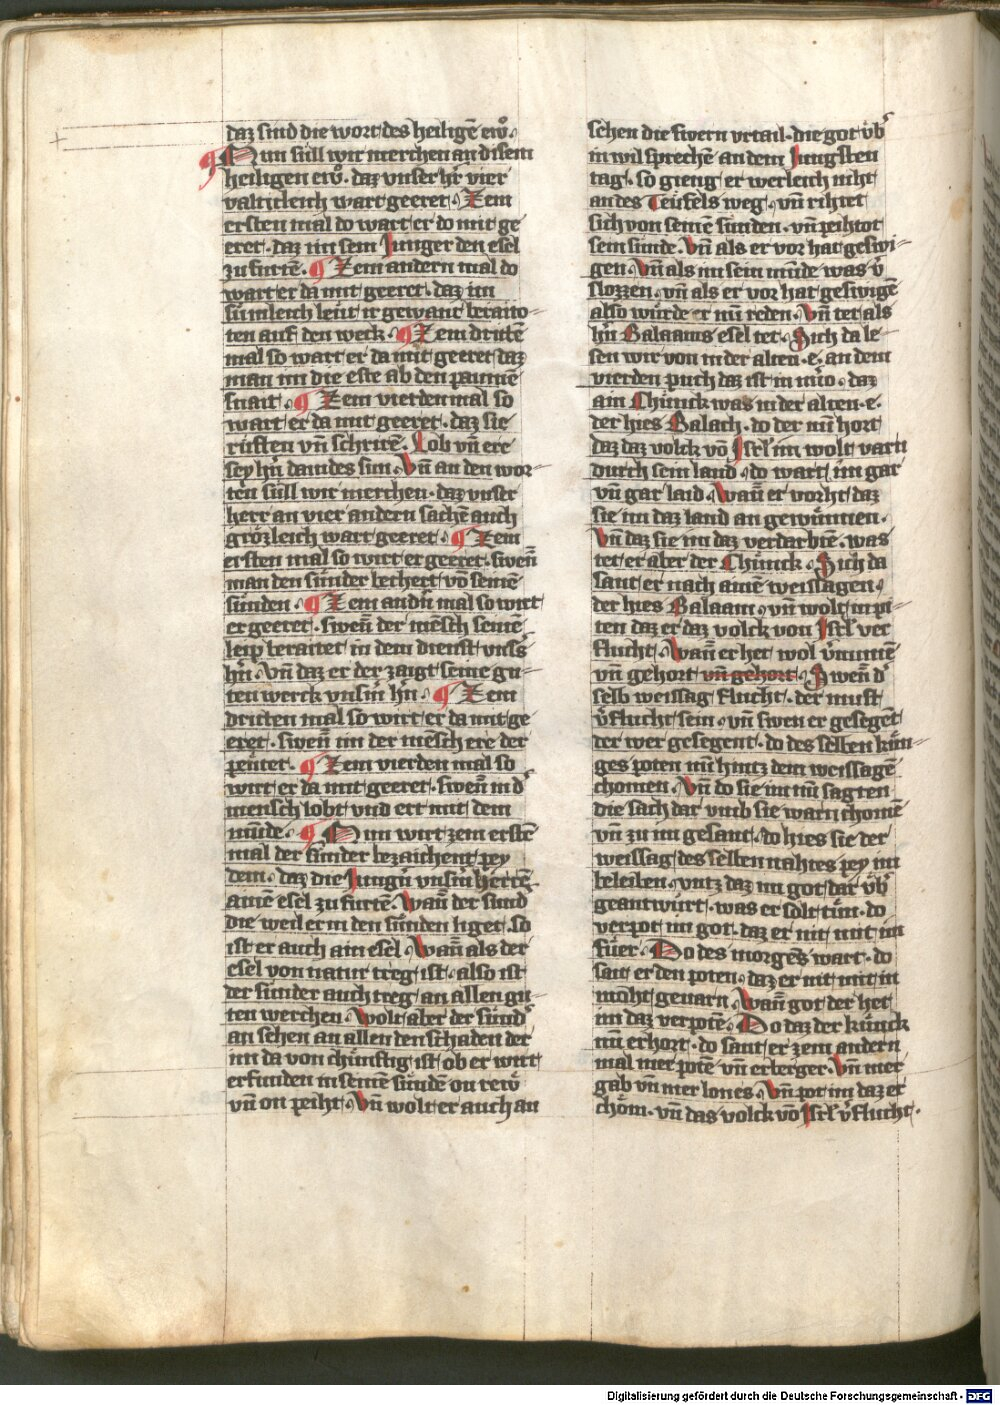 daz sind die wort des heiligē ewͦ.
¶ Nun süll wir merchen an disem
heiligen ewͦ. daz vnser hr̄ vier
valticleich wart geeret. Zem
ersten mal do wart er do mit ge
eret. daz im sein Junger den esel
zu furtē. ¶ Zem andern mal do
wart er da mit geeret. daz im
sümleich leüt ir gewant beraito-
ten auf den weck. ¶ Zem dritē
mal so wart er da mit geeret daz
man im die este ab den paumē
snait. ¶ Zem vierden mal so
wart er da mit geeret. daz sie
rüften vn̄ schritē. Lob vn̄ ere
sey hn̄ dauides sun. Vn̄ an den wor-
ten süll wir merchen. daz vnser
herr an vier andern sachē auch
grözleich wart geeret. ¶ Zem
ersten mal so wirt er geeret. swen̄
man den sünder bechert vō seinē
sünden. ¶ Zem andn̄ mal so wirt
er geeret. swen̄ der mēsch seinē
leip beraitet in dem dienst vnss
hn̄. vn̄ daz er der zaigt seine gu-
ten werck vnsm̄ hn̄. ¶ Zem
dritten mal so wirt er da mit ge
eret. swen̄ im der mēsch ere der
peütet. ¶ Zem vierden mal so
wirt er da mit geeret. swen̄ in d̓
mensch lobt vnd ert mit dem
münde. ¶ Nun wirt zem erstē
mal der sünder bezaichent pey
dem. daz die Jungn̄ vnsm̄ herrē
ainē esel zu furtē. Wan̄ der sund̓
die weil er in den sünden liget. so
ist er auch ain esel. Wan̄ als der
esel von natur treg ist. also ist
der sünder auch treg an allen gu-
ten werchen. Wolt aber der sünd̓
an sehen an allen den schaden der
im da von chünftig ist. ob er wirt
erfunden in seinē sündē on rewͦ
vn̄ on peiht. Vn̄ wolt er auch an
schen die sivern vrtail. die got vb̓
in wil sprechē an dem Jungsten
tag. so gieng er werleich niht
an des Teufels weg. vn̄ rihtet
sich von seinē sunden. vn̄ peihtot
sein sunde. Vn̄ als er vor hat geswi-
gen. Vn̄ als im sein münde was v̓
slozzen. vn̄ als er vor hat geswigē
also würde er nü reden. Vn̄ tet als
hn̄ Balaams esel tet. Sich da le-
sen wir von in der alten. e. an dem
vierden puch daz ist in nūio. daz
ain Chünck was in der alten. e.
der hies Balach. do der nü hort
daz daz volck vō Isrl̓ im wolt varn
durch sein land. do wart im gar
vn̄ gar laid. Wan̄ er vorht daz
sie im daz land an gewünnen.
Vn̄ daz sie im daz verdarbtē. was
tet er aber der Chünck. Sich da
sant er nach ainē weissagen.
der hies Balaam. vn̄ wolt in pi-
ten daz er daz volck von Isrl̓ ver
flucht. Wan̄ er het wol v̓nūmē
vn̄ gehort vn̄ gehort. Swen̄ d̓
selb weissag flucht. der must
v̓flucht sein. vn̄ swen er gesegēt
der wer gesegent. do des selben kün-
ges poten nü hintz dem weissagē
chomen. Vn̄ do sie im nü sagten
die sach dar vmb sie warn chomē
vn̄ zu im gesant. do hies sie der
weissag des selben nahtes pey im
beleiben. vntz daz im got dar vb̓
geantwürt. was er sölt tün. do
verpot im got. daz er nit mit im
füer. Do des morgēs wart. do
sait er den poten. daz er nit mit in
möht geuarn. Wan̄ got der het
im daz verpotē. Do daz der künck
nü erhort. do sant er zem andern
mal mer potē vn̄ erberger. Vn̄ mer
gab vn̄ mer lones. Vn̄ pot im daz er
chöm. vn̄ das volck vō Isrl̓ v̓flucht.
Digitalisierung gefördert durch die Deutsche Forschungsgemeinschaft - DFG